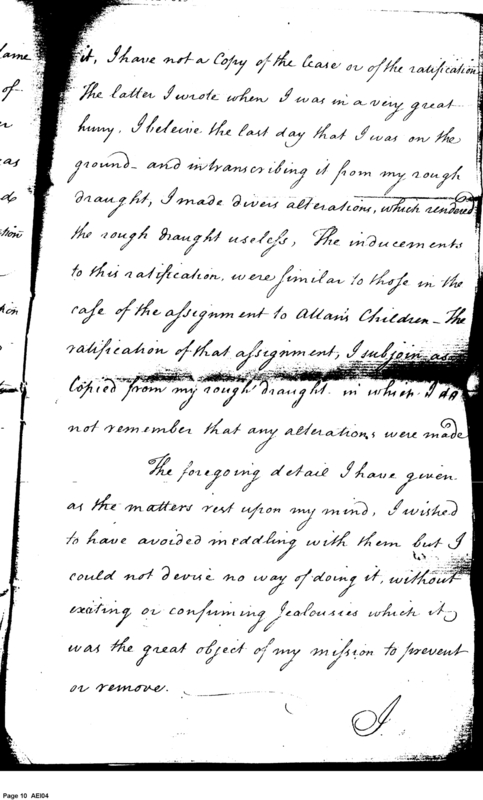 it, I have not a Copy of the lease or of the ratification
The latter I wrote when I was in a very great
hurry. I beleive the last day that I was on the
ground – and in transcribing it from my rough
draught, I made divers alterations, which rendered
the rough draught useless, The inducements
to this ratification, were similar to those in the
case of the assignment to Allan's Children – The
ratification of that assignment, I subjoin as
Copied from my rough draught in which I do
not remember that any alterations were made
The foregoing detail I have given
as the matters rest upon my mind, I wished
to have avoided meddling with them but I
could not devise no way of doing it, without
exciting or confirming Jealousies which it
was the great object of my mission to prevent
or remove.
I
lame
of
as
tion
Page 10 AEI04